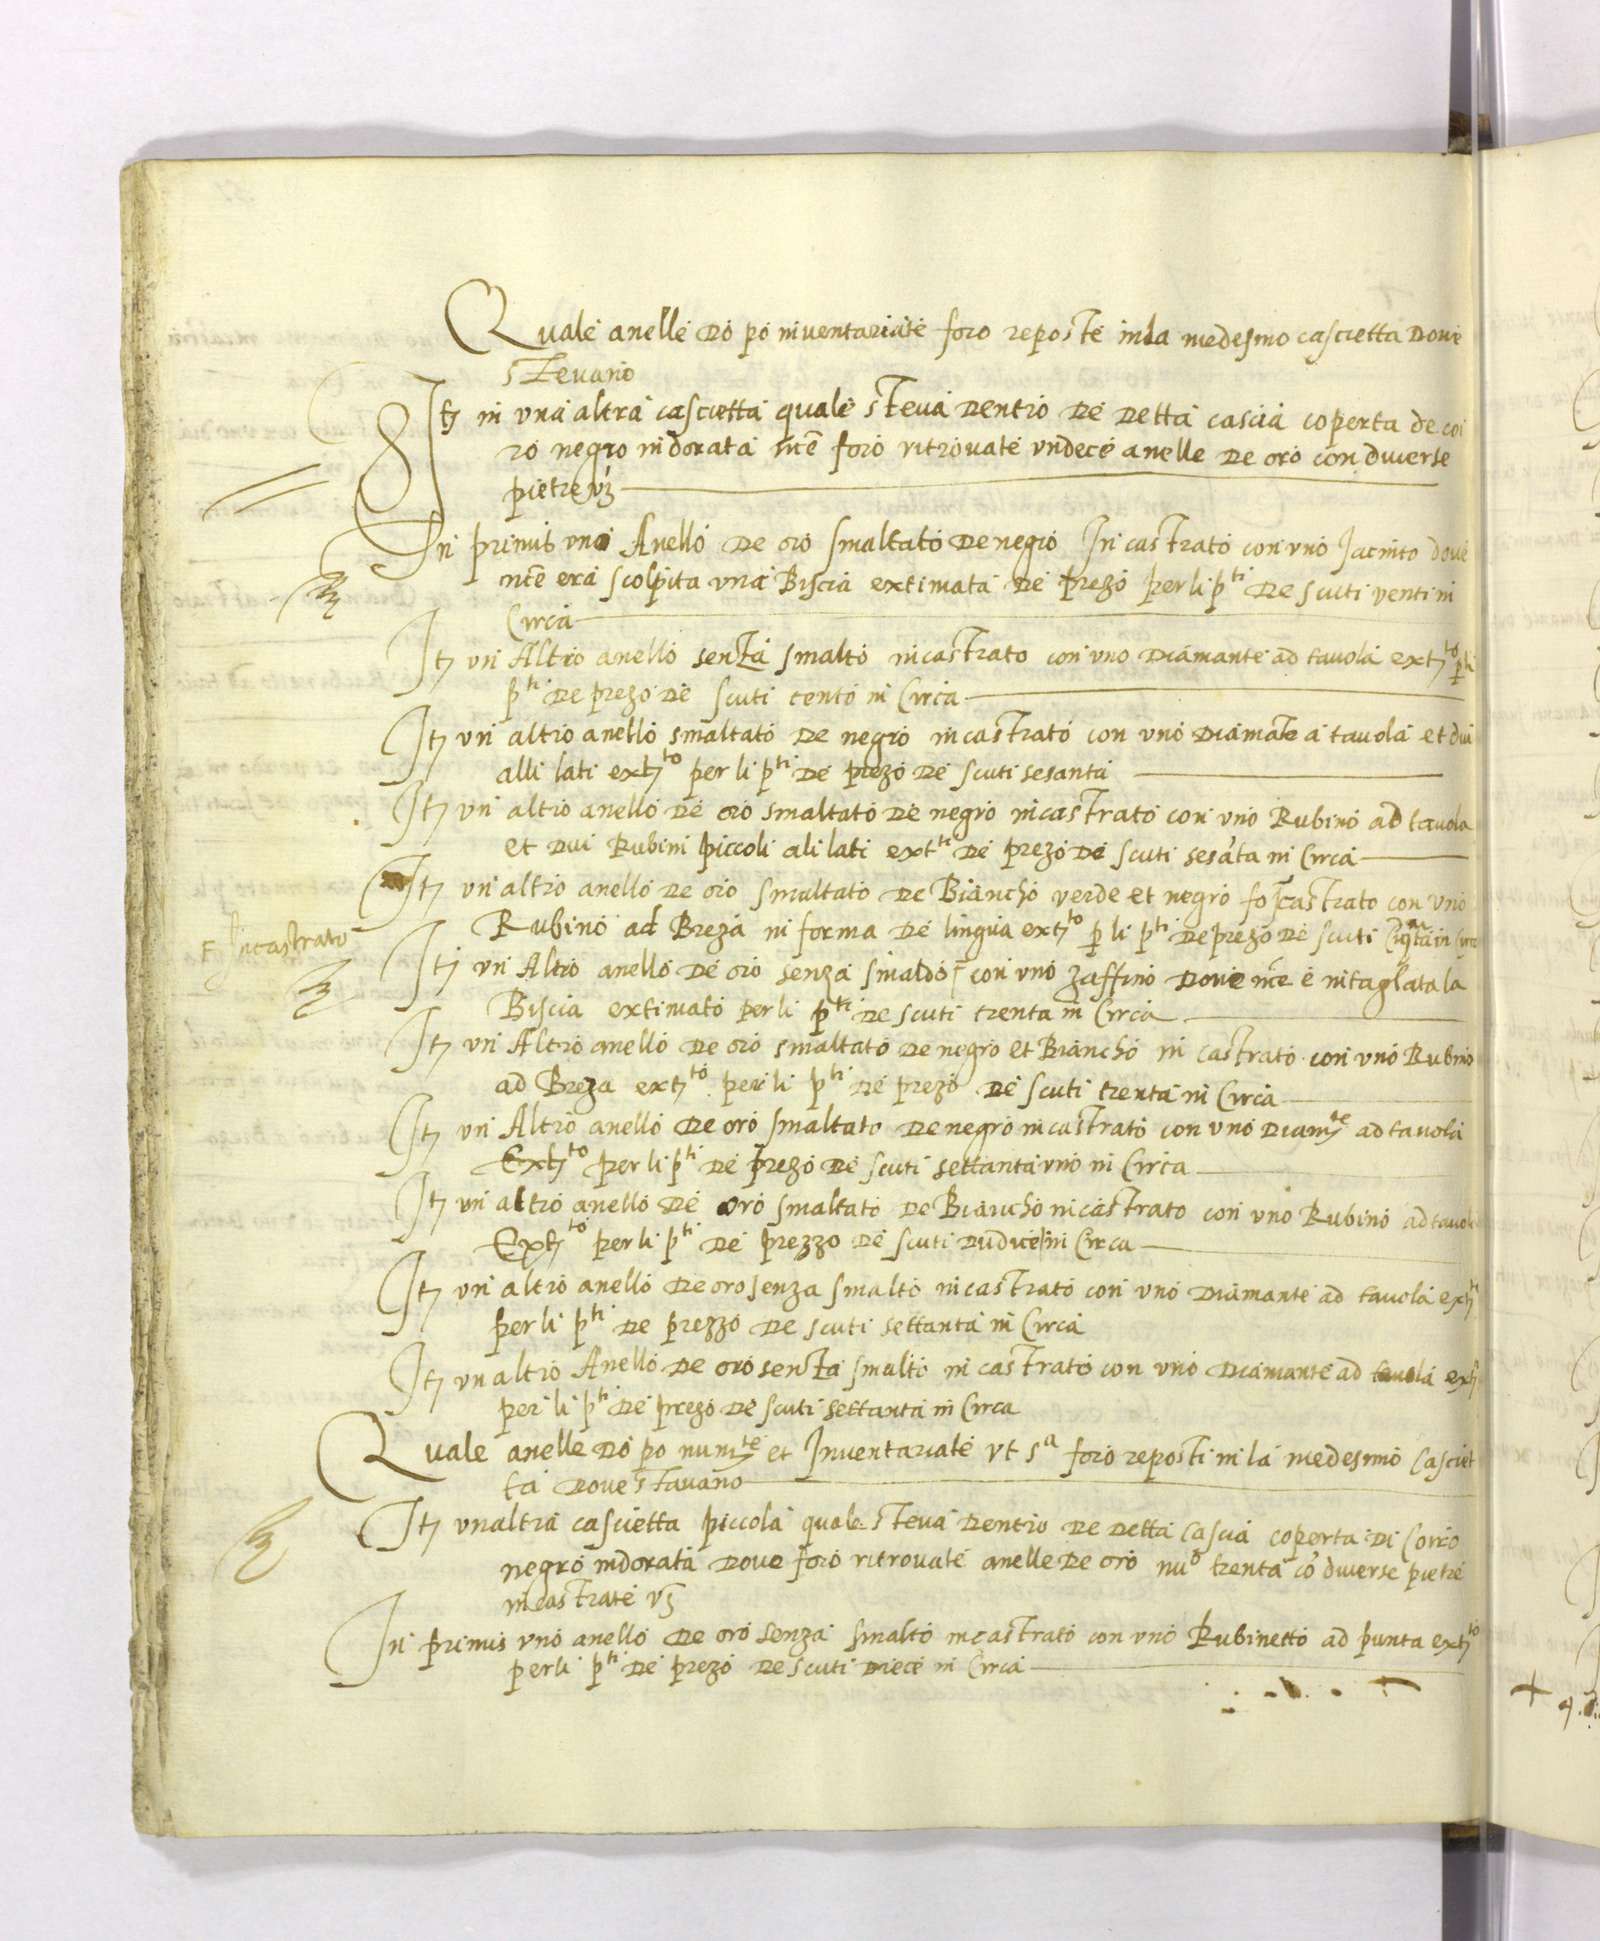 Quale anelle dò pò inventariate foro reposte inla medesmo cascietta dove
stevano
It3 in una altra cascietta quale steva dentro de detta cascia coperta de coi
ro negro indorata nce foro ritrovate undece anelle de oro con diverse
pietre v3
In primis uno Anello de oro smaltato de negro Incastrato con uno Jacinto dove
nce era scolpita una Biscia extimata de prezo per li p.ti de scuti venti in
Circa
It3 un Altro anello senza smalto incastrato con uno diamante ad tavola ext3to p li
p.ti de prezo de scuti cento in Circa
It3 un altro anello smaltato de negro incastrato con uno diamãte a tavola et dui
alli lati ext3to per li p.ti de prezo de scuti sesanta
It3 un altro anello de oro smaltato de negro incastrato con uno Rubino ad tavola
et dui Rubini piccoli ali lati extti de prezo de scuti sesãta in Circa
It3 un altro anello de oro smaltato de Biancho verde et negro castrato con uno
Rubino ad Breza in forma de lingua ext3to p li p.ti de prezo de scuti in Circa
Incastrato
It3 un Altro anello de oro senza smaldo con uno zaffino dove nce è intagliata la
Biscia extimato per li p.ti de scuti trenta in Circa
It3 un Altro anello de oro smaltato de negro et Biancho in castrato con uno Rubino
ad Breza ext3to per li p.ti de prezo de scuti trenta in Circa
It3 un Altro anello de oro smaltato de negro incastrato con uno diam3te ad tavola
Ext3to per li p.ti de prezo de scuti settanta uno in Circa
It3 un altro anello de oro smaltato de Biancho incastrato con uno Rubino ad tavola
Ext3to per li p.ti de prezzo de scuti dudice in Circa
It3 un altro anello de oro senza smalto incastrato con uno diamante ad tavola ext3to
per li p.ti de prezzo de scuti settanta in Circa
It3 un altro Anello de oro senza smalto in castrato con uno diamante ad tavola ext3
per li p.ti de prezo de scuti settanta in Circa
Quale anelle dò pò num3te et Inventariate ut s.a foro reposti in la medesmo Casciet
ta dove stavano
It3 un altra cascietta piccola quale steva dentro de detta Cascia coperta di Coiro
negro indorata dove foro ritrovate anelle de oro nu.o trenta cõ diverse pietre
incastrate v3
In primis uno anello de oro senza smalto incastrato con uno Rubinetto ad punta ext3to
per li p.ti de prezo de scuti diece in Circa